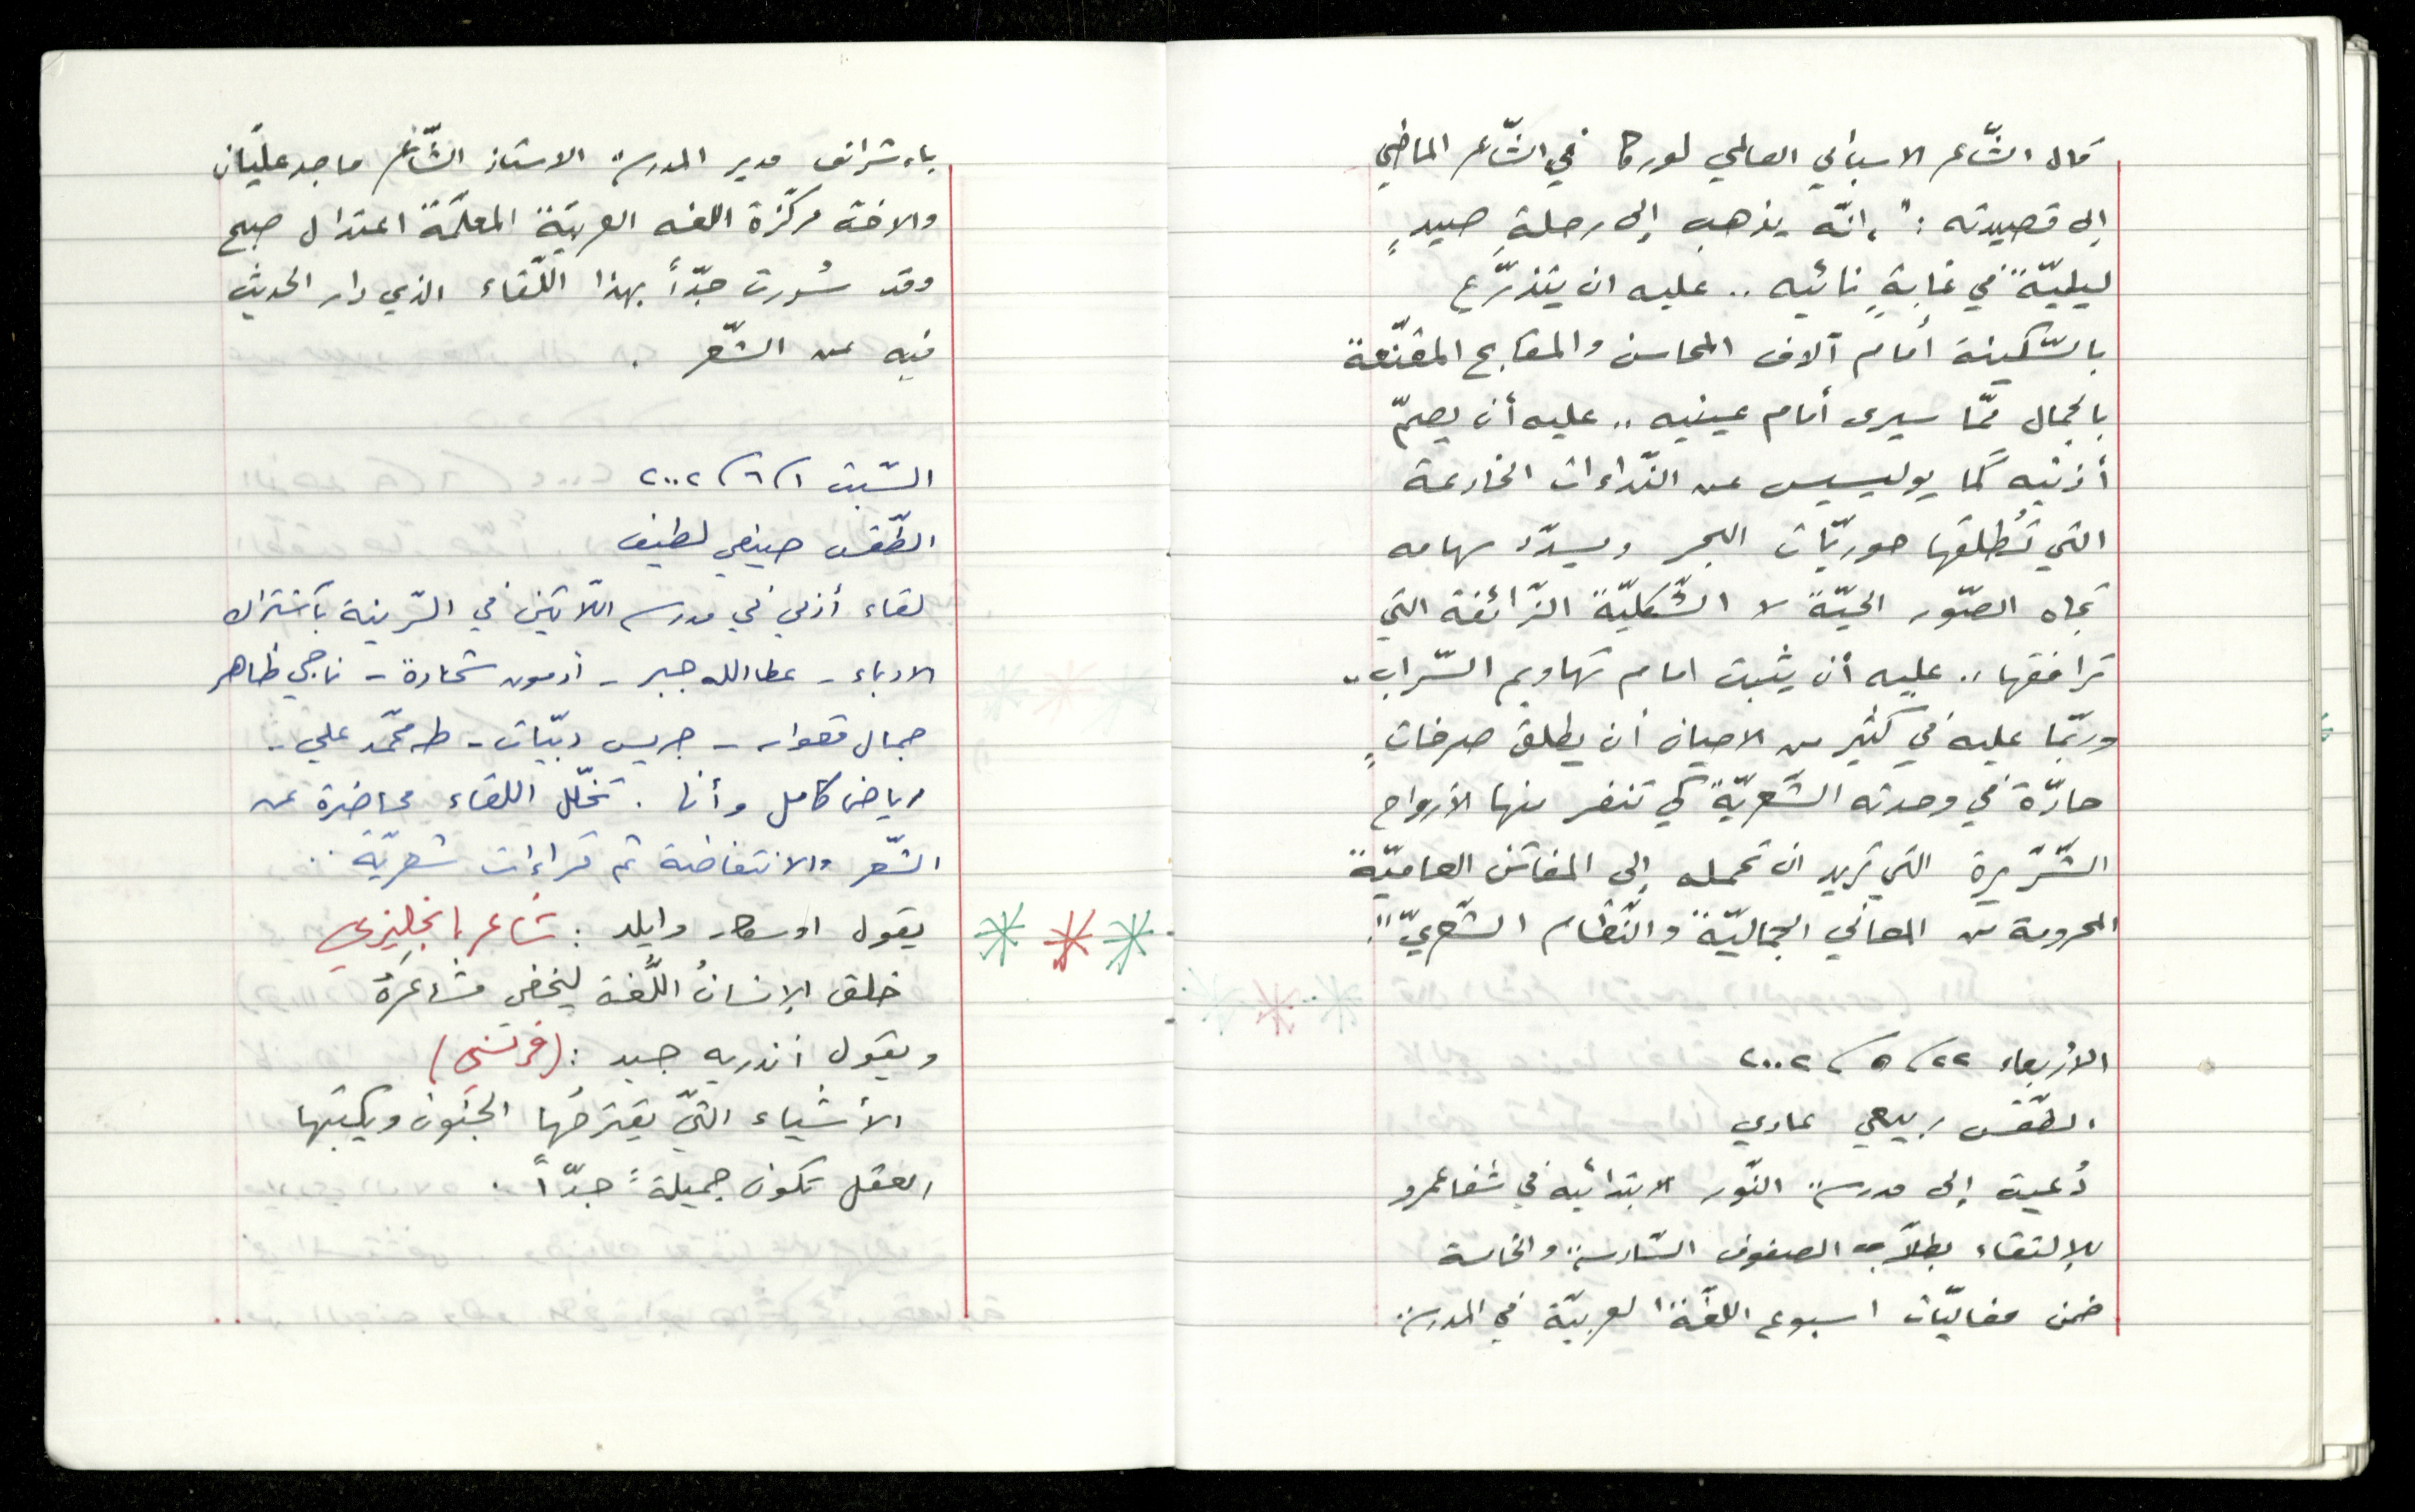 قال الشّاعر الاسباني العالمي لوركا في الشّاعر الماضي
إلى قصيدته : "انّه يذهب إلى رحلةِ صيدٍ
ليليّة في غابةٍ نائيه .. عليه ان يتذرّع
بالسّكينة أمام آلاف المحاسن والمقابح المقنّعة
بالجمال ممّا سيرى أمام عينيه .. عليه أن يصمّ
أذنيه كما يوليسيس عن النّداءات الخادعة
التي تُطلقها حوريّات البحر ويسدّد سهامه
تجاه الصّور الحيّة لا الشّكليّة الزّائفة التي
ترافقها .. عليه أن يثبت امام تهاويم السّراب ..
وربّما عليه في كثير من الاحيان أن يطلق صرخاتٍ
حادّة في وحدته الشّعريّة كي تنفر منها الأرواح
الشّرّيرة التي تريد ان تحمله إلى المفاتن العاميّة
المحرومة من المعاني الجماليّة والنّظام الشّعريّ".
الأربعاء ٢٢/ ٥/ ٢٠٠٢
الطّقس ربيعي عادي
دُعيت إلى مدرسة النّور الابتدائيه في شفاعمرو
للإلتقاء بطلّاب الصفوف السّادسة والخامسة
ضمن فعاليّات اسبوع اللغّة العربيّة في المدرسة
باشراف مدير المدرسة الاستاذ الشّاعر ماجد عليّان
والاخت مركّزة اللغه العربيّة المعلّمة اعتدال صبح
وقد سُررت جدّاً بهذا اللّقاء الذي دار الحديث
فيه عن الشّعر .
السّبت ١/ ٦/ ٢٠٠٢
الطّقس صيفي لطيف
لقاء أدبي في مدرسة اللّاتين في الرّينة باشتراك
الادباء - عطاالله جبر - ادمون شحادة - ناجي ظاهر
جمال قعوار - جريس دبيّات - طه محمّد علي -
رياض كامل وأنا . تخلّل اللقاء محاضرة عن
الشّعر والانتفاضة ثم قراءات شعريّة ..
يقول اوسكار وايلد : شاعر إنجليزي
خلق الإنسانُ اللُّغة ليخفي مشاعرَهُ
ويقول أندريه جيد : (فرنسي)
الأشياء التيّ يقترحُها الجنون ويكتبها
العقل تكون جميلة جدّاً .